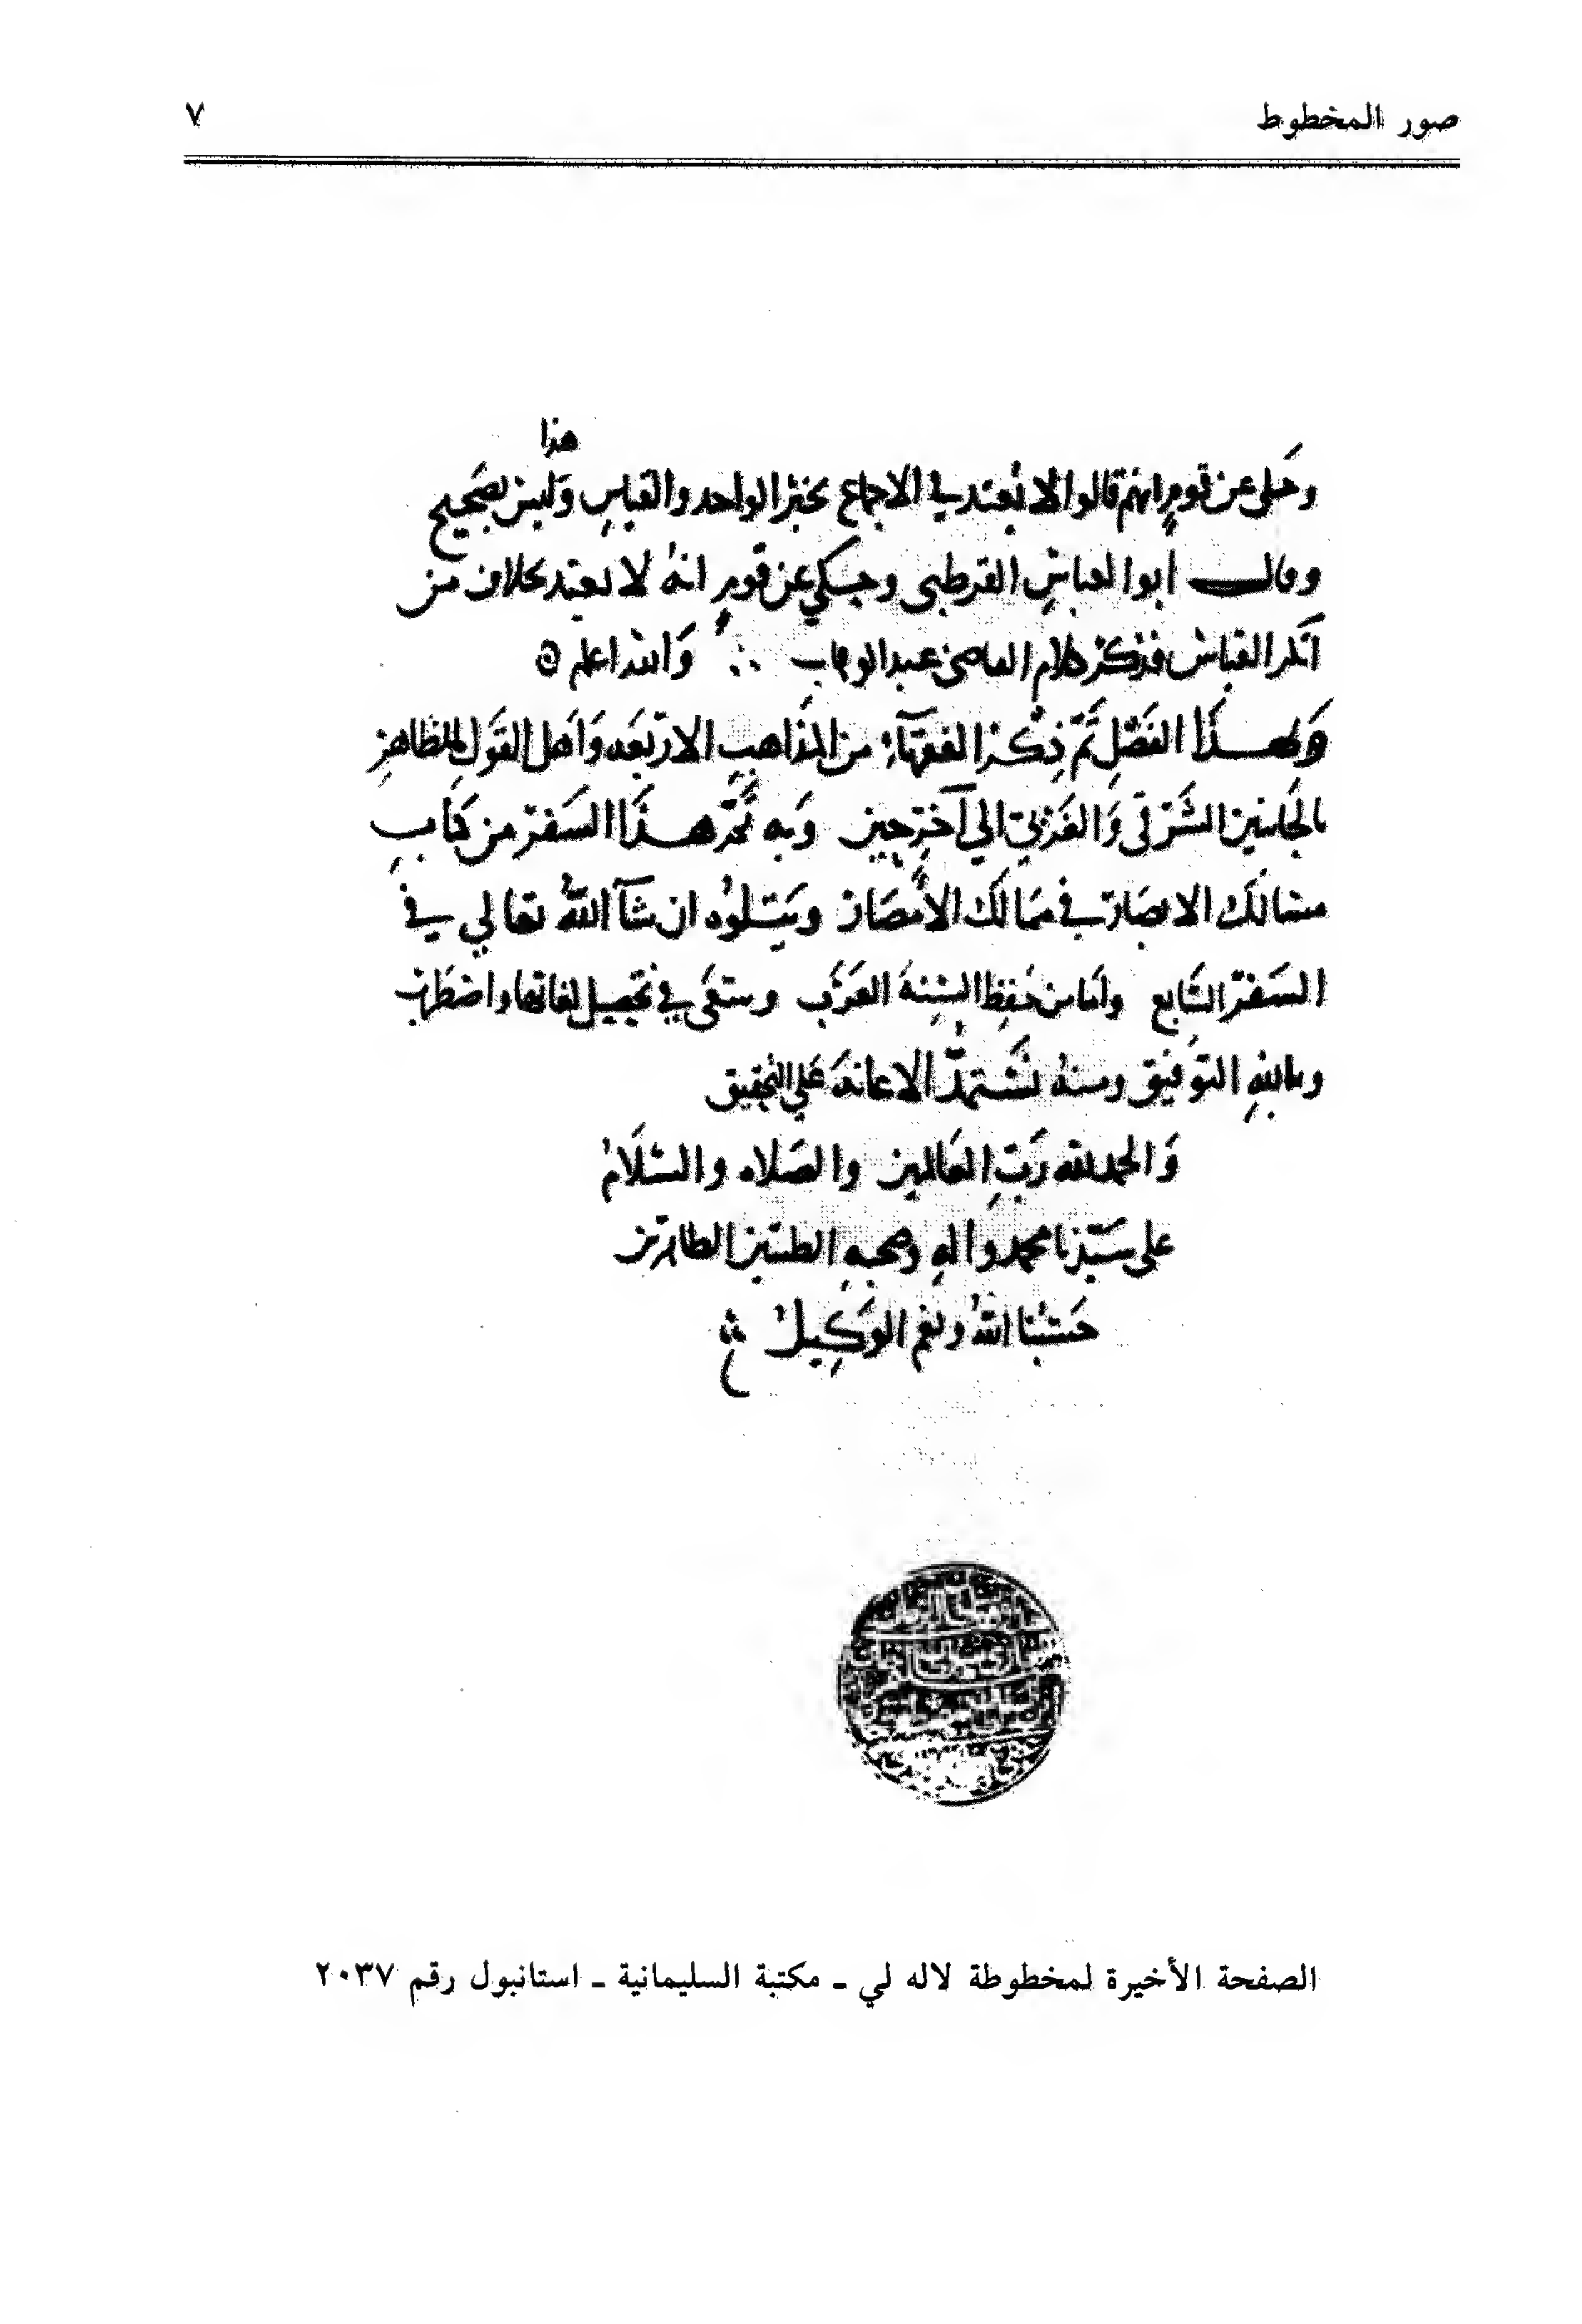 صور المخطوط
٧
هذا
وحكى عن قوم انهم قالوا لا يعتد في الاجماع بخبر الواحد والقياس وليس بصحيح
وقال أبو العباس القرطبى وحكي عن قوم انه لا يعتد بخلاف من
انكر القياس فذكر كلام القاضى عبد الوهاب ∴ والله اعلم
وبهذا الفَصْلِ تَمَّ ذِكْرُ الفقهآء من المذاهب الاربعه وَاهل القَول بالظاهر
بالجانبين الشرقى وَالغربي الي آخر حين وَبه تمّ هذا السفر من كتاب
مسالك الابصار في ممالك الأمصار ويتلوه ان شآ اللهُ تعالي في
السفر السَّابع وأما من حفظ السنة العرب وسعى في تحصيل لغاتها واضطراب
وبالله التوفيق ومنه نستمدّ الاعانه علي التحقيق
وَالحمد لله رَبِّ العَالمين والصَلاه والسَّلَامُ
على سَيِّدنا محمد واله وصحبه الطيبين الطاهرين
حَسْبُنا اللهُ ونعم الوَكِيلُ
الصفحة الأخيرة لمخطوطة لاله لي ـ مكتبة السليمانية ـ استانبول رقم ٢٠٣٧